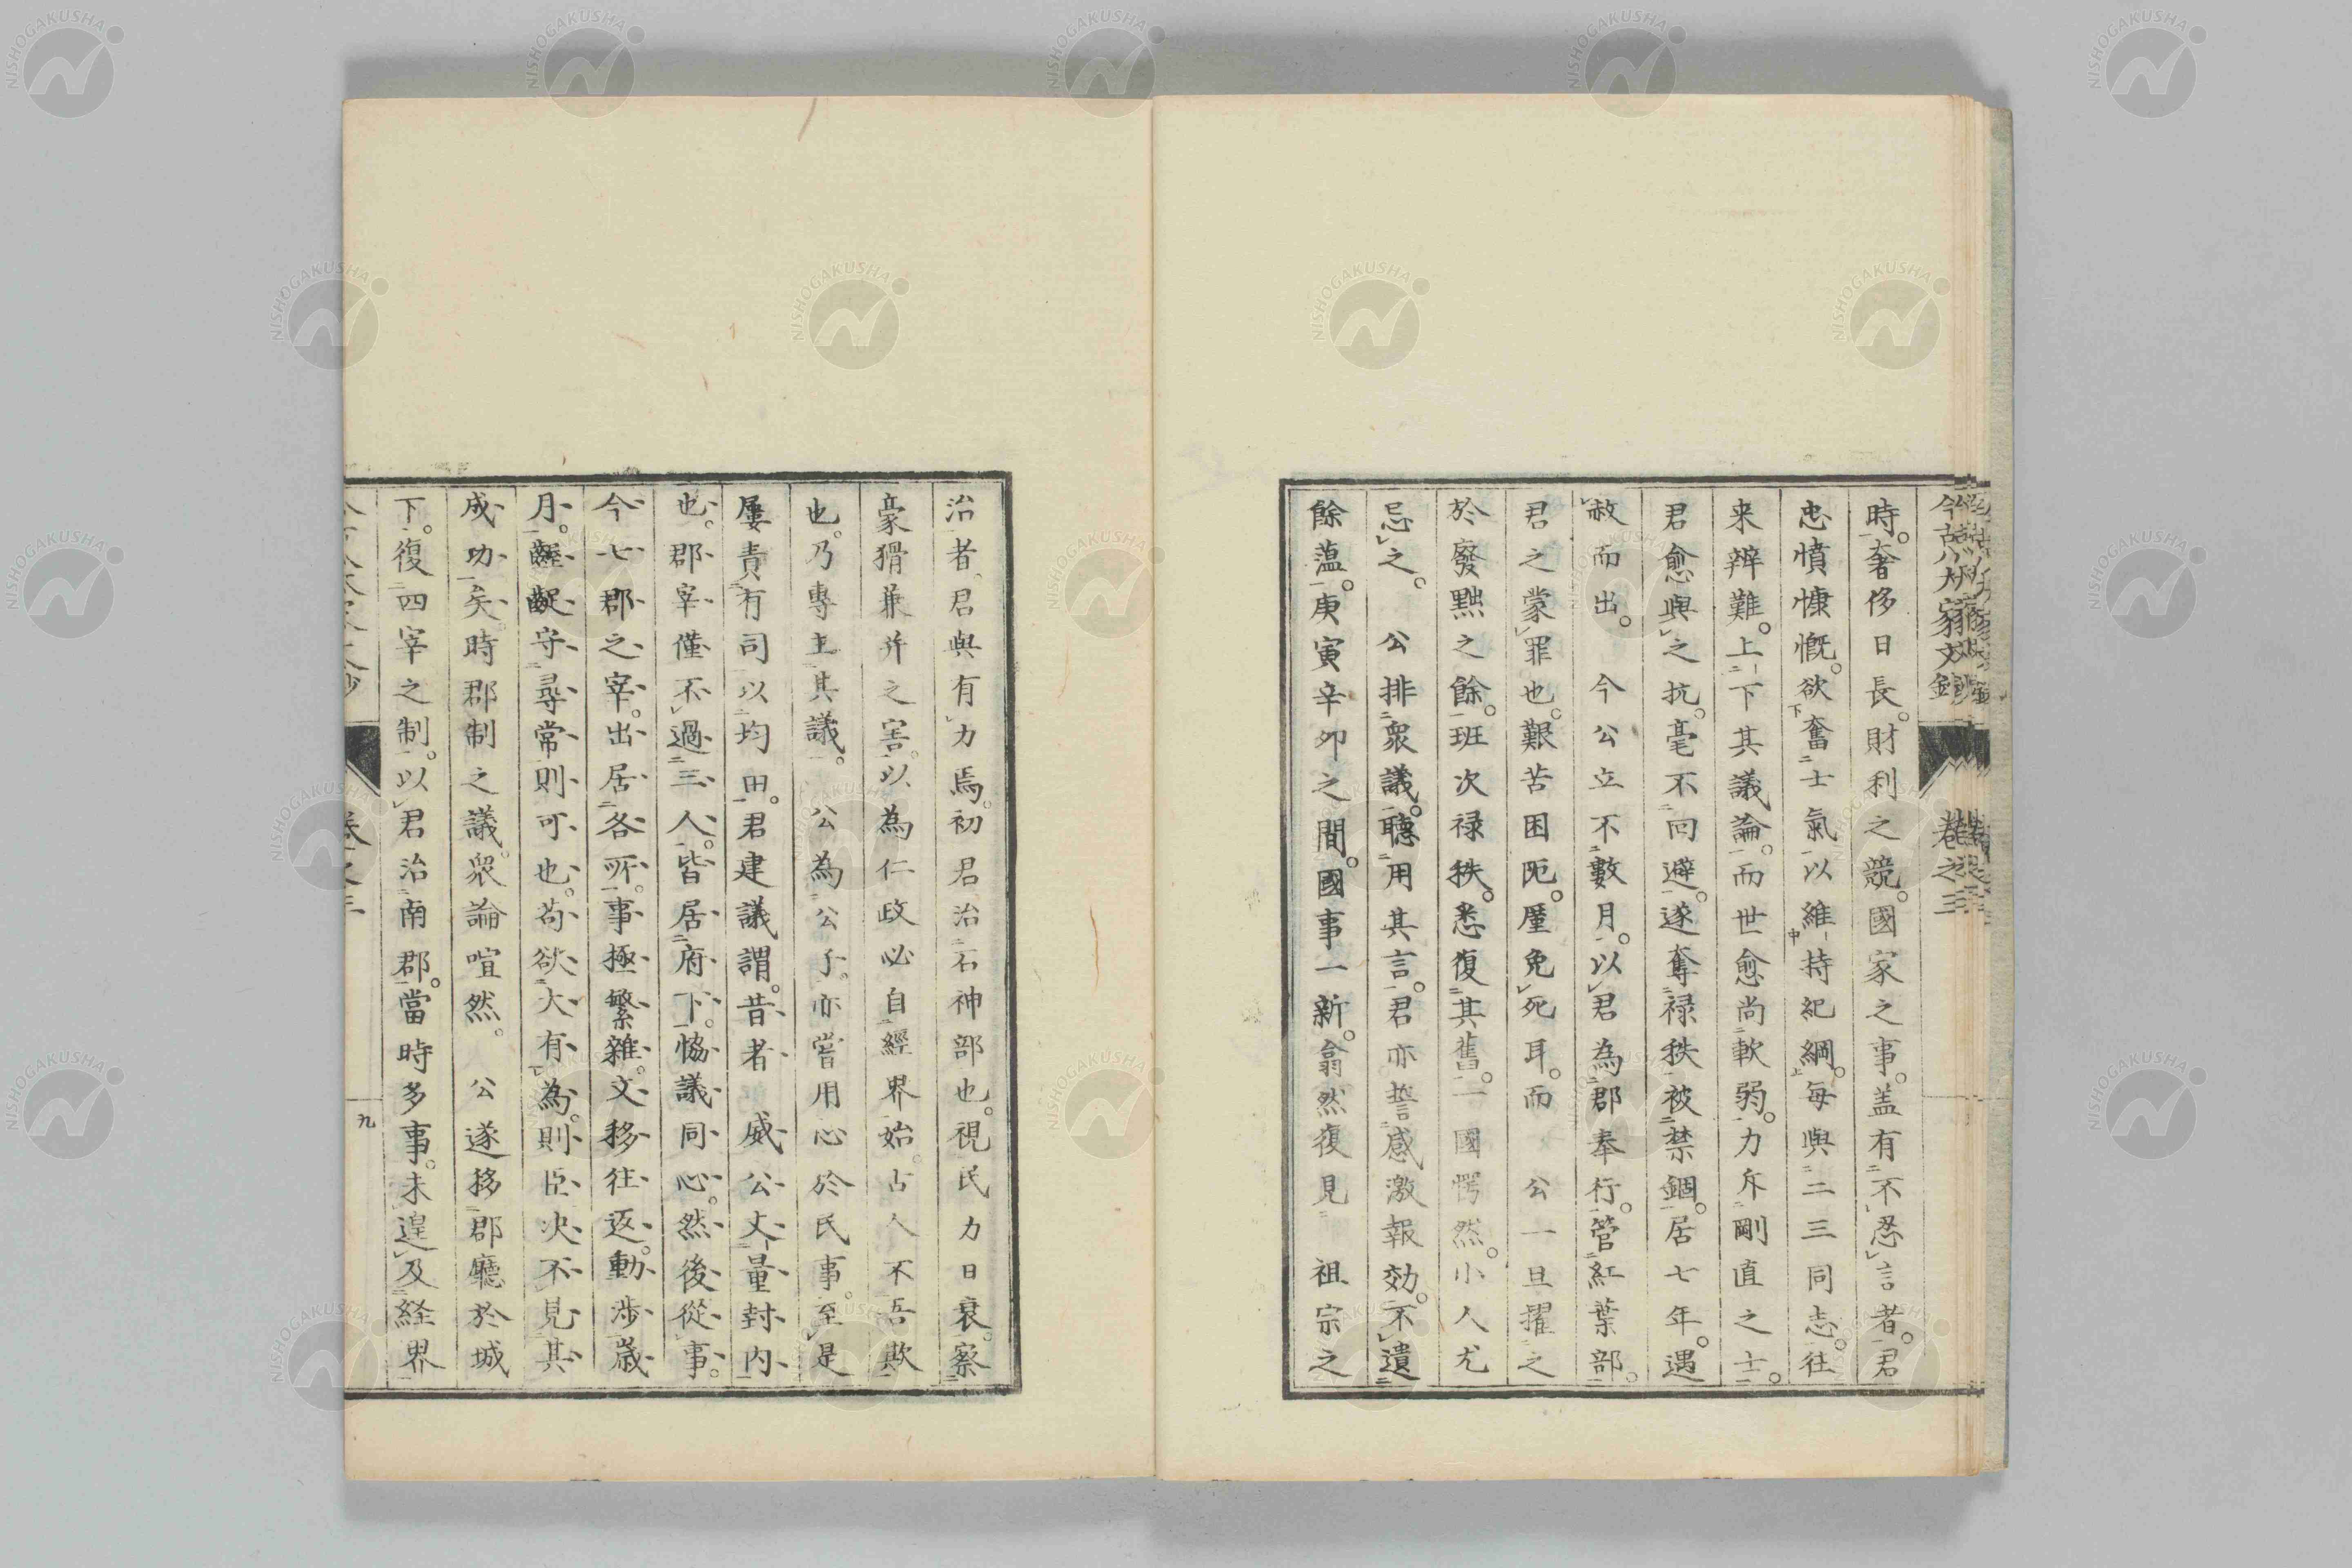 時。奢侈日長。財利之競。國家之事。盖有不忍言者。君
忠憤慷慨。欲奮士氣以維持紀綱。每與二三同志。往
来辨難。上下其議論。而世愈尚軟弱。力斥剛直之士。
君愈與之抗。毫不回避。遂奪禄秩被禁錮。居七年。遇
赦而出。今公立不數月。以君為郡奉行。管紅葉部。
君之蒙罪也。艱苦困阨。厪免死耳。而公一旦擢之
於廢黜之餘。班次禄秩。悉復其舊。一國愕然。小人尤
忌之。公排衆議。聴用其言。君亦誓感激報効。不遺
餘薀。庚寅辛卯之間。國事一新。翕然復見祖宗之
治者。君與有力焉。初君治石神部也。視民力日衰。察
豪猾兼并之害。以為仁政必自經界始。古人不吾欺
也。乃專主其議。公為公子。亦嘗用心於民事。至是
屢責有司以均田。君建議謂。昔者威公丈量封内
也。郡宰僅不過三人。皆居府下。恊議同心。然後從事。
今七郡之宰。出居各所。事極繁雜。文移往返。動渉歳
月。齷齪守尋常則可也。苟欲大有為。則臣决不見其
成功矣。時郡制之議。衆論喧然。公遂移郡廳於城
下。復四宰之制。以君治南郡。當時多事。未遑及経界
今古八大家文鈔
卷之三
九
NISHOGAKUSHA